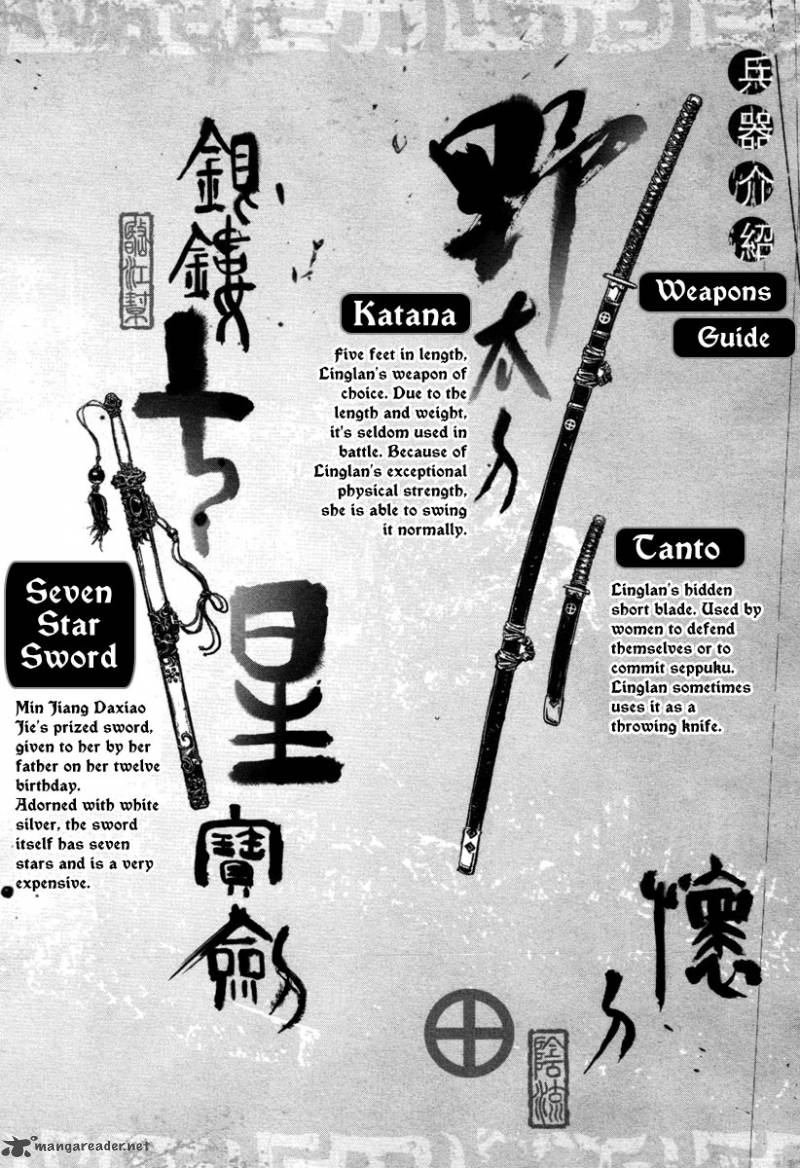 兵
器
介
紹
Weapons
Guide
野
太
刀
Katana
Five feet in length,
Linglan's weapon of
choice. Due to the
length and weight,
it's seldom used in
battle. Because of
Linglan's exceptional
physical strength,
she is able to swing
it normally.
Tanto
Linglan's hidden
short blade. Used by
women to defend
themselves or to
commit seppuku.
Linglan sometimes
uses it as a
throwing knife.
懷
刀
銀
鏤
七
星
寶
劍
臨江幫
Seven
Star
Sword
Min Jiang Daxiao
Jie's prized sword,
given to her by her
father on her twelve
birthday.
Adorned with white
silver, the sword
itself has seven
stars and is a very
expensive.
陰流
mangareader.net